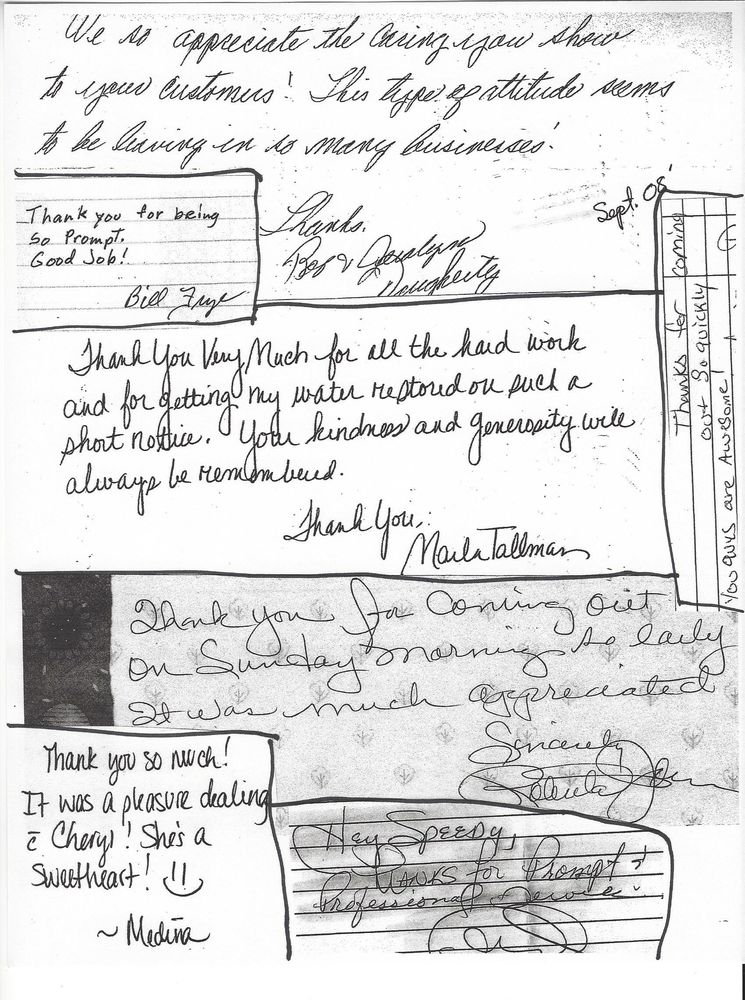 We so appreciate the caring you show
to your customers! This type of attitude seems
to be leaving in so many businesses.
Sept. 08'
Thanks,
Bob & Jeralynn
Daugherty
Thank you for being
So Prompt.
Good Job!
Bill Frye
Thanks for coming
out so quickly
You guys are Awesome!
Thank You Very Much for all the hard work
and for getting my water restored on such a
short notice. Your kindness and generosity will
always be remembered.
Thank You,
Marla Tallman
Thank you for Coming out
on Sunday morning so early
It was much appreciated
Sincerely
Thank you so much!
It was a pleasure dealing
c̄ Cheryl! She's a
Sweetheart!
~ Medina
Hey Speedy,
Thanks for Prompt &
Professional Service.